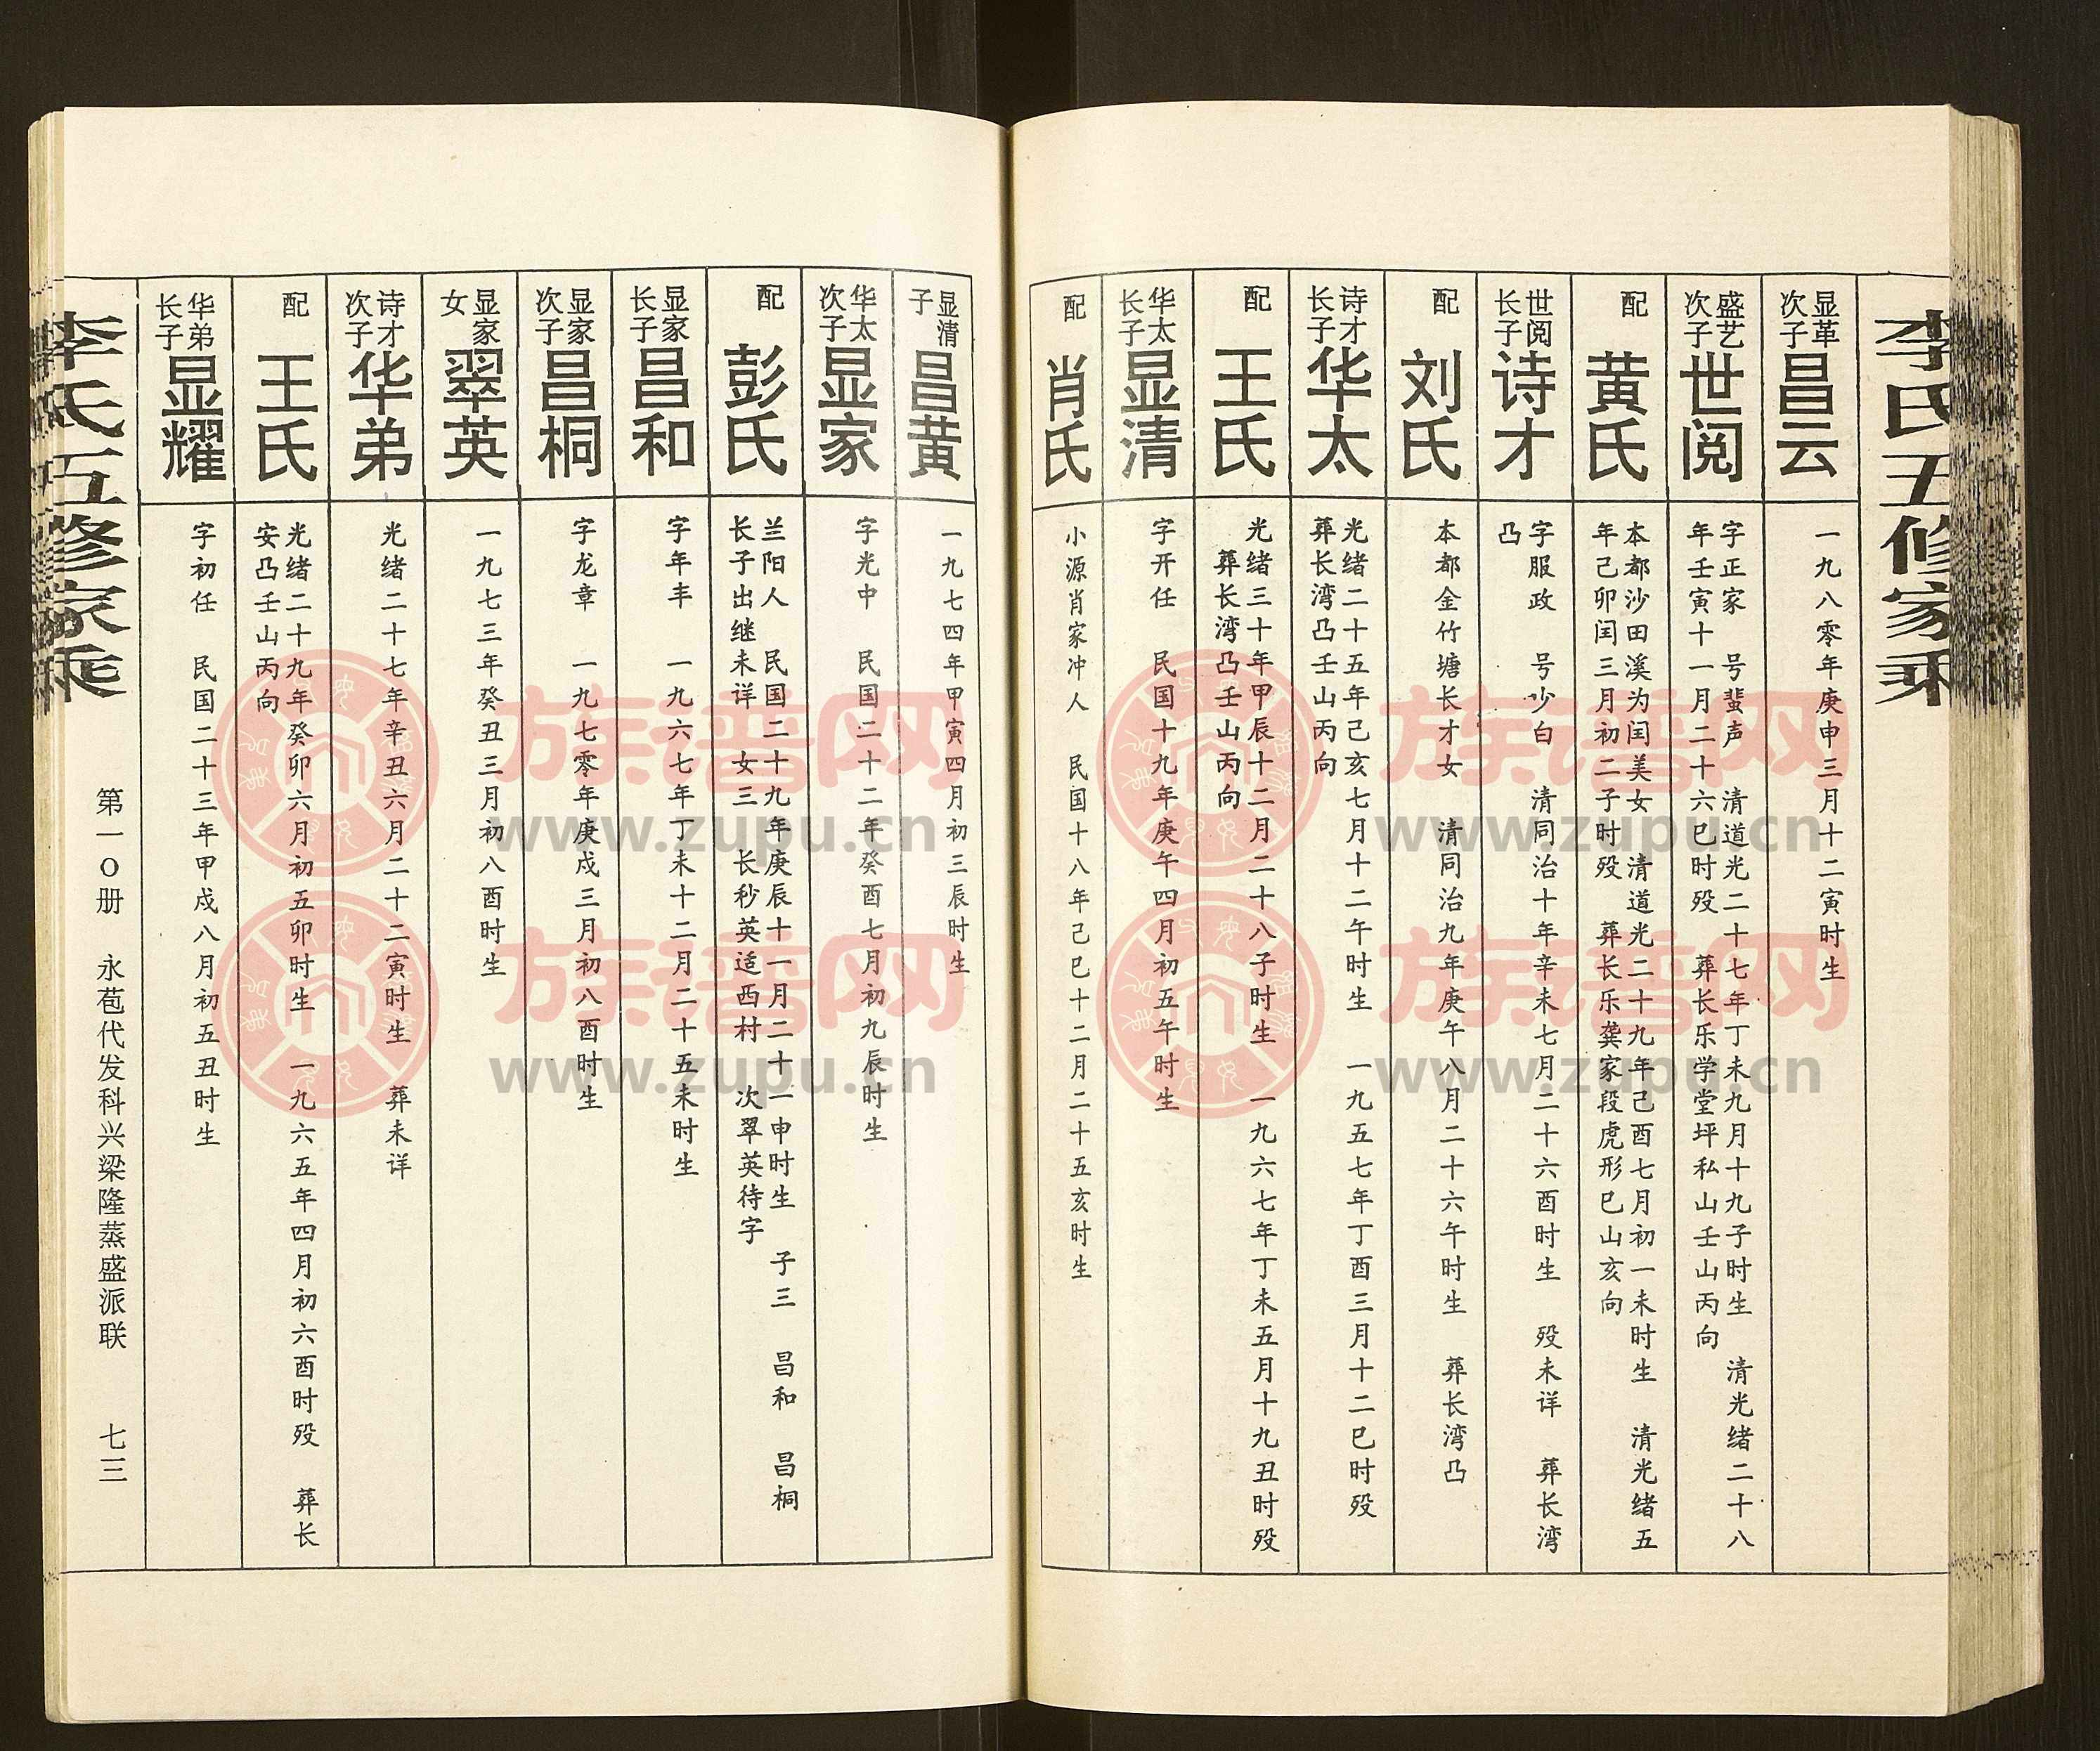 李氏五修家乘
显革次子
昌云
一九八零年庚申三月十二寅时生
盛艺次子
世阅
字正家　号蜚声　清道光二十七年丁未九月十九子时生　清光绪二十八
年壬寅十一月二十六巳时殁　葬长乐学堂坪私山壬山丙向
配
黄氏
本都沙田溪为闰美女　清道光二十九年己酉七月初一未时生　清光绪五
年己卯闰三月初二子时殁　葬长乐龚家段虎形巳山亥向
世阅长子
诗才
字服政　号少白　清同治十年辛未七月二十六酉时生　殁未详　葬长湾
凸
配
刘氏
本都金竹塘长才女　清同治九年庚午八月二十六午时生　葬长湾凸
诗才长子
华太
光绪二十五年己亥七月十二午时生　一九五七年丁酉三月十二巳时殁
葬长湾凸壬山丙向
配
王氏
光绪三十年甲辰十二月二十八子时生　一九六七年丁未五月十九丑时殁
葬长湾凸壬山丙向
华太长子
显清
字开任　民国十九年庚午四月初五午时生
配
肖氏
小源肖家冲人　民国十八年己巳十二月二十五亥时生
显清子
昌黄
一九七四年甲寅四月初三辰时生
华太次子
显家
字光中　民国二十二年癸酉七月初九辰时生
配
彭氏
兰阳人　民国二十九年庚辰十一月二十一申时生　子三　昌和　昌桐
长子出继未详　女三　长秒英适西村　次翠英待字
显家长子
昌和
字年丰　一九六七年丁未十二月二十五未时生
显家次子
昌桐
字龙章　一九七零年庚戌三月初八酉时生
显家女
翠英
一九七三年癸丑三月初八酉时生
诗才次子
华弟
光绪二十七年辛丑六月二十二寅时生　葬未详
配
王氏
光绪二十九年癸卯六月初五卯时生　一九六五年四月初六酉时殁　葬长
安凸壬山丙向
华弟长子
显耀
字初任　民国二十三年甲戌八月初五丑时生
李氏五修家乘
第一0册　永苞代发科兴梁隆蒸盛派联　七三
族谱网
www.zupu.cn
族谱网
www.zupu.cn
族谱网
www.zupu.cn
族谱网
www.zupu.cn